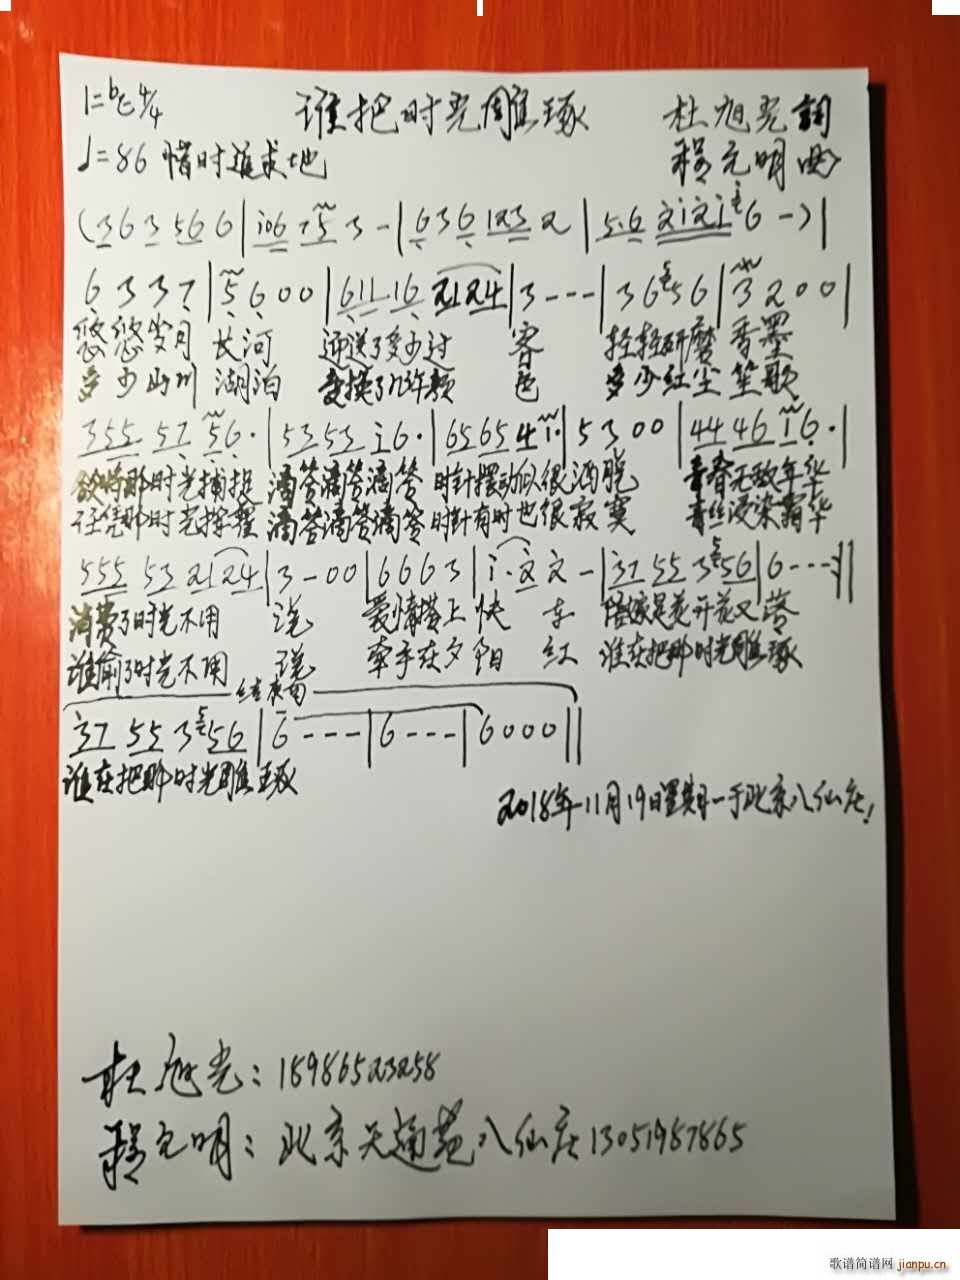 谁把时光雕琢
杜旭光 詞
♩=86 惜时追求地
程元明 曲
(3 6 3 5 6 6 | i 0 6 7 5 3 - | 6 3 6 1 2 3 2 | 5· 6 2 i 2 i 6 -) |
6 3 3 7 | 5 6 0 0 | 6 1 1 1 6 2 1 2 4 | 3 - - - | 3 6 5 6 | 3 2 0 0 |
悠悠岁月 长河 迎送了多少过 客 轻轻研磨 香墨
多少山川 湖泊 变换了几许颜 色 多少红尘 笙歌
3 5 5 5 7 5 6· | 5 3 5 3 i 6· | 6 5 6 5 4 i· | 5 3 0 0 | 4 4 4 6 i 6· |
欲将那时光捕捉 滴答滴答滴答 时针摆动似很洒脱 青春无敌年华
任凭那时光挥霍 滴答滴答滴答 时针有时也很寂寞 青丝浸染霜华
5 5 5 5 3 2 1 2 4 | 3 - 0 0 | 6 6 6 3 | i· 2 2 - | 3 7 5 5 3 5 6 | 6 - - - :||
消费了时光不用 说 爱情搭上快 车 花开花又落
谁偷了时光不用 说 牵手在夕阳 红 谁在把那时光雕琢
结束句
3 7 5 5 3 5 6 | 6 - - - | 6 - - - | 6 0 0 0 ||
谁在把那时光雕琢
2018年11月19日星期一于北京八仙庄!
杜旭光:15986523258
程元明:北京天通苑八仙庄13051987865
歌谱简谱网 jianpu.cn